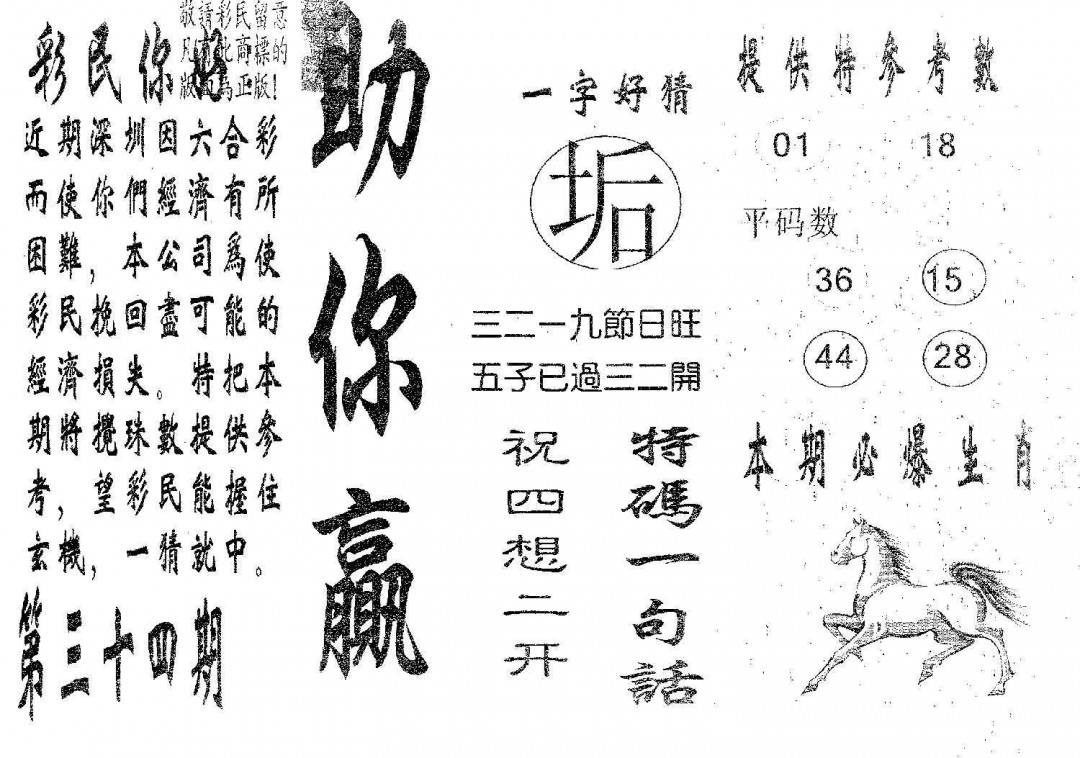 敬請彩民留意
凡
高標的
版
為正版！
彩民你好
近期深圳因六合彩
而使你們經濟有所
困難，本公司爲使
彩民挽回盡可能的
經濟損失。特把本
期將攪珠數提供參
考，望彩民能握住
玄機，一猜就中。
第三十四期
助你贏
一字好猜
垢
三二一九節日旺
五子已過三二開
特碼一句話
祝四想二开
提供特參考數
01 18
平码数
36 15
44 28
本期必爆生肖